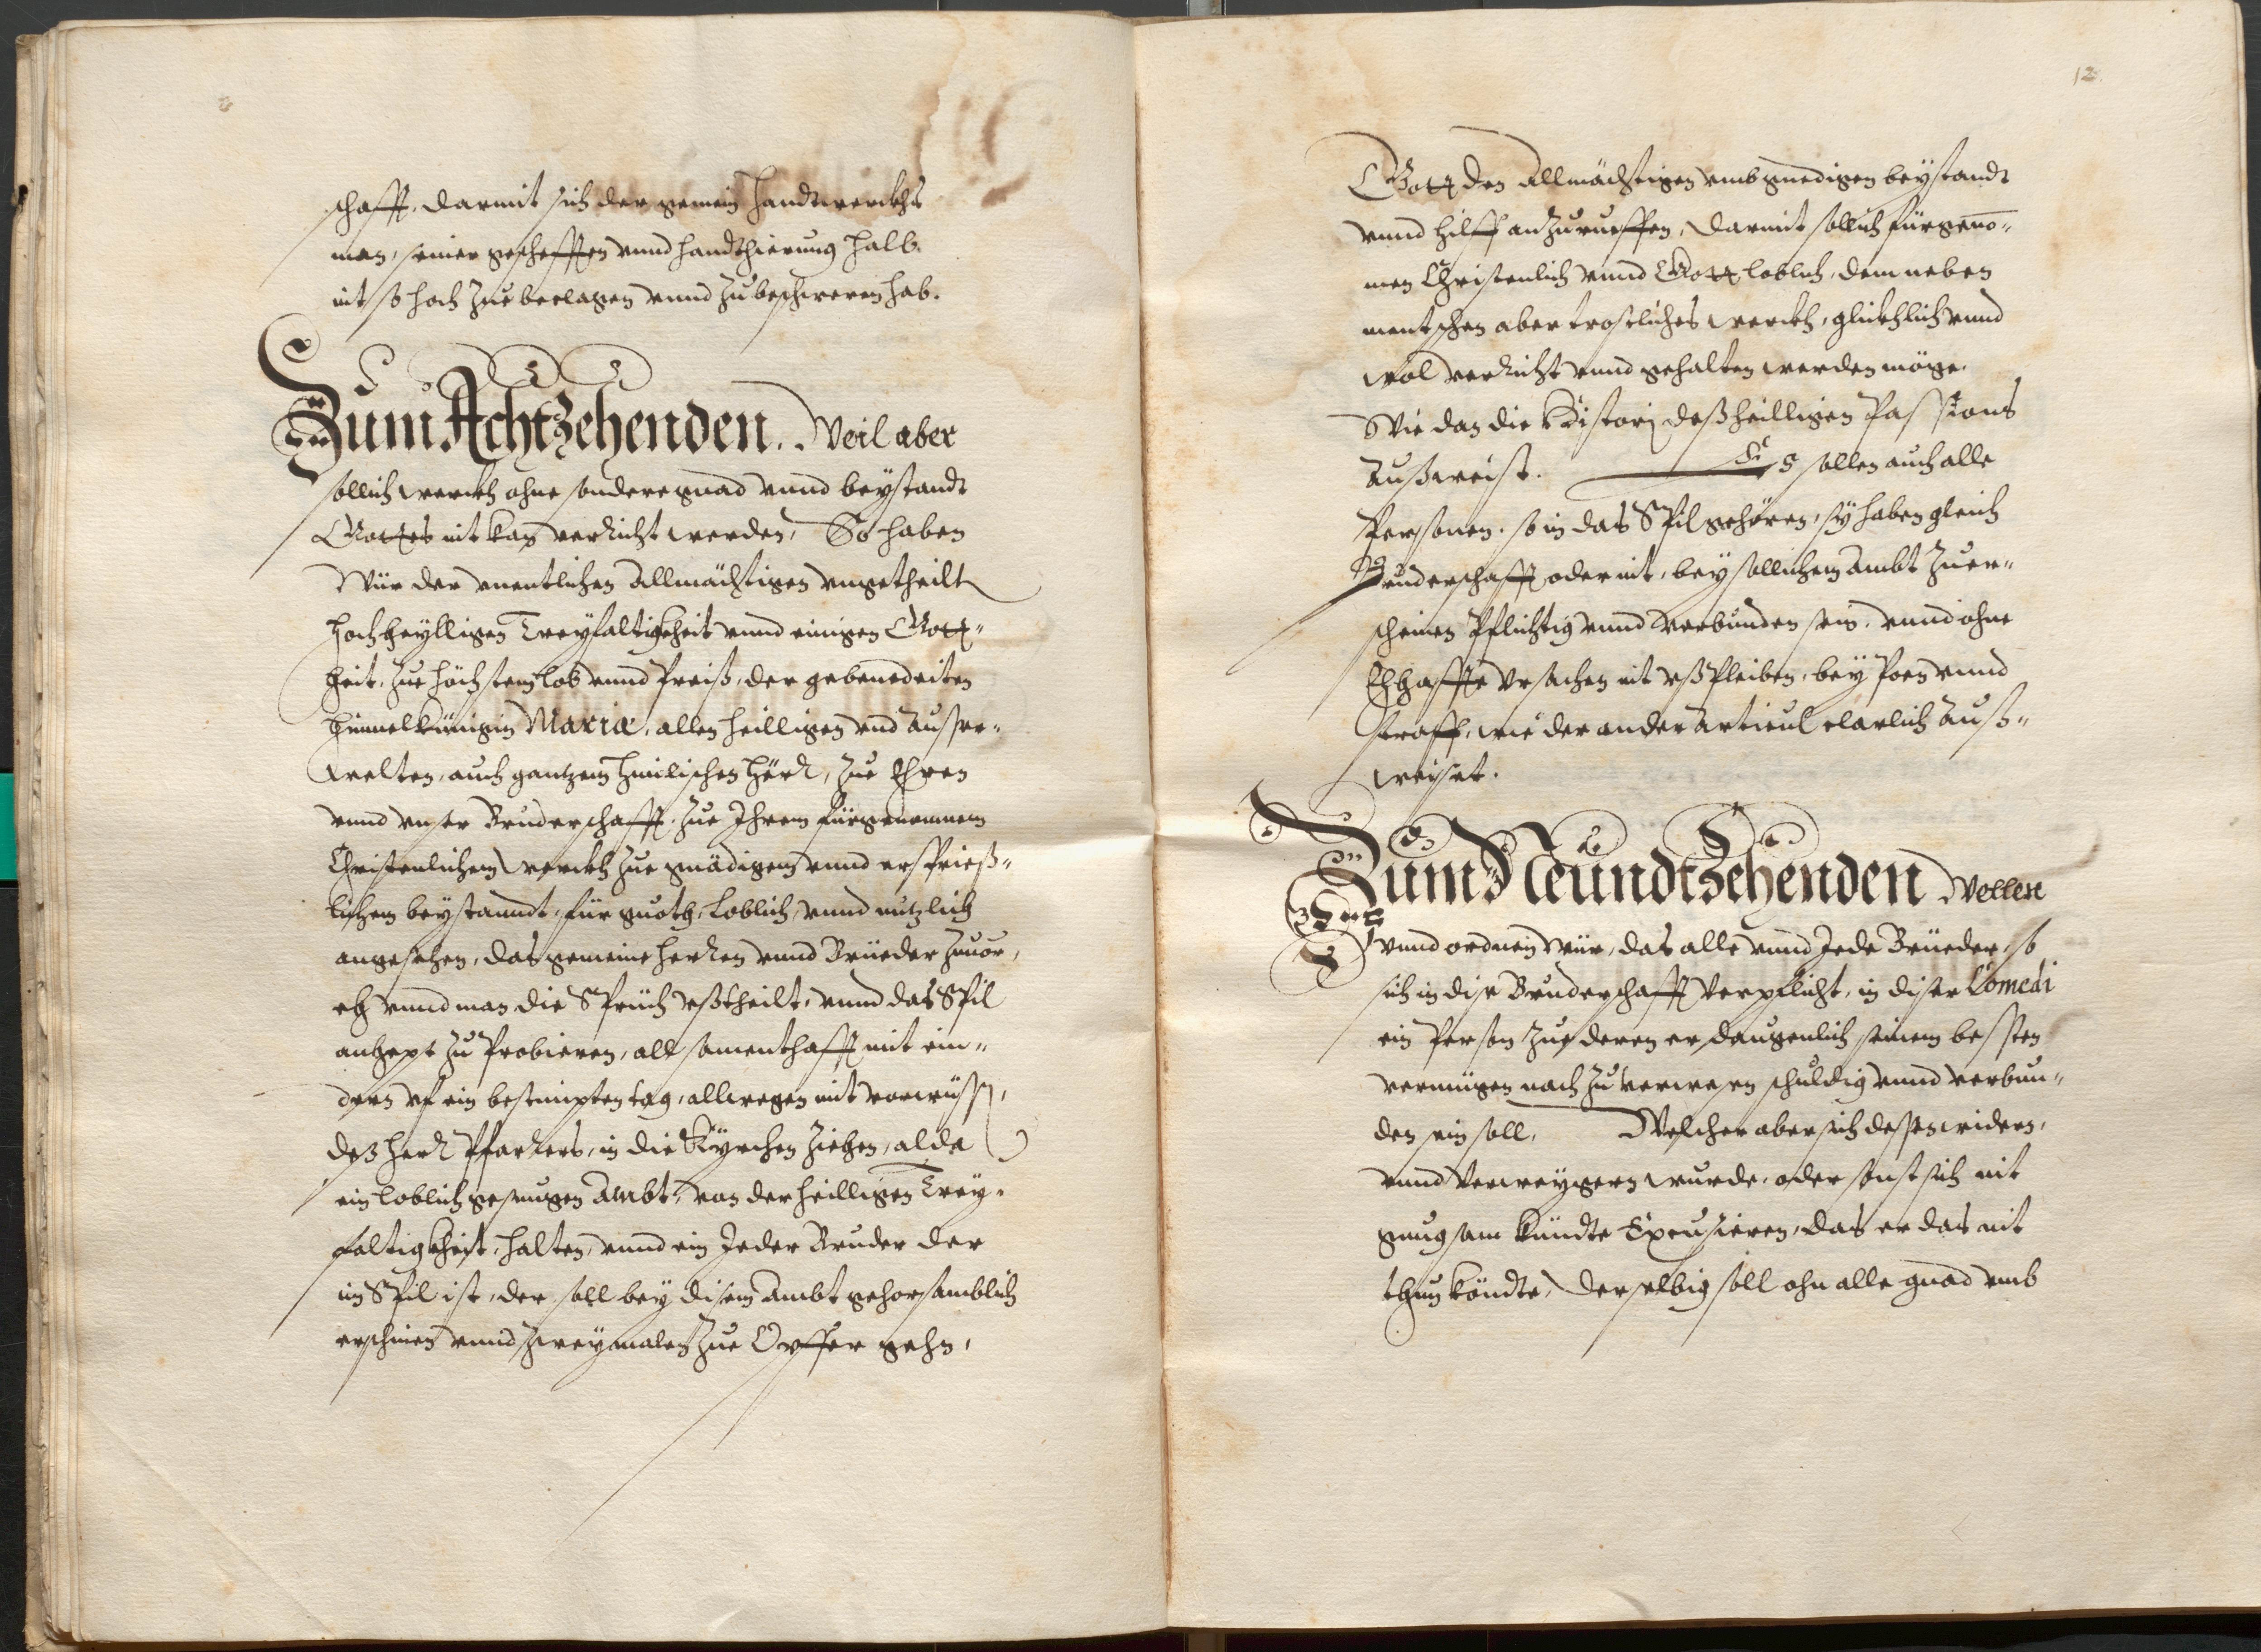 schafft, darmit sich der gemein Handtwerckhs
man, seiner gescheffften vnnd handthierung halb.
nit so hoch zue beclagen vnnd zu beschweren hab.
Zum Achtzehenden. Weil aber
sollich werckh ohne sondere gnad vnnd beystandt
Gottes nit kan verricht werden, So haben
Wür der vnentlichen Allmächtigen vngetheilt
hochheylligen Treyfaltigkheit vnnd einigen Gott-
heit, zue höchstem lob vnnd Preiß, der gebenedeiten
himmelkünigin Mariæ, allen heilligen vnd Ausser-
welten, auch gantzem himlischen hörr, zue Ehren
vnnd vnser Bruderschafft, zue Ihrem fürgenomnem
Christenlichem werckh zue gnädigem vnnd ersprieß-
lichem beystanndt, für guoth, Loblich, vnnd nutzlich
angesehen, das gemeine herren vnnd Brüeder zuuor,
eh vnnd man die Sprüch vßtheilt, vnnd das Spil
anhept zu Probieren, all samenthafft mit ein-
dern vf ein bestimpten tag, allwegen mit vorwüssen,
deß herr Pfarrers, in die Kÿrchen ziehen, alda
ein loblich gesungen Ambt, von der heilligen Trey-
faltigkheit, halten, vnnd ein Jeder Bruder der
im Spil ist, der soll bey disem Ambt gehorsamblich
erschinen vnnd zweymalen zue Opffer gehn,
12.
Gott den Allmächtigen vmb gnedigen beystandt
vnnd hilff anzuruoffen, darmit sollich fürgeno-
men Christenlich vnnd Gott loblich, dem neben
mentschen aber trostliches werckh, glückhlich vnnd
wol verricht vnnd gehalten werden möge.
Wie dan die Histori deß heilligen Passions
Außweist. Es sollen auch alle
Personen, so in das Spil gehören, sÿ haben gleich
Bruderschafft oder nit, bey sollichem Ambt zuer-
scheinen Pflichtig vnnd verbunden sein, vnnd ohne
Ehhaffte vrsachen nit vßpleiben, bey Poen vnnd
straff, wie der ander Articul clarlich Auß-
weiset.
Zum Neundtzehenden Wellen
vnnd ordnen wür, das alle vnnd Jede Brüeder, so
sich in dise Bruderschafft verpflicht, in diser Comedi
ein Person zue deren er daugenlich seinem besten
vermügen nach zu verwesen schuldig vnnd verbun-
den sein soll, Welcher aber sich dessen widern,
vnnd verweygern wurde, oder sonst sich nit
gnugsam kündte Excusieren, das er das nit
thun köndte, derselbig soll ohn alle gnad vmb